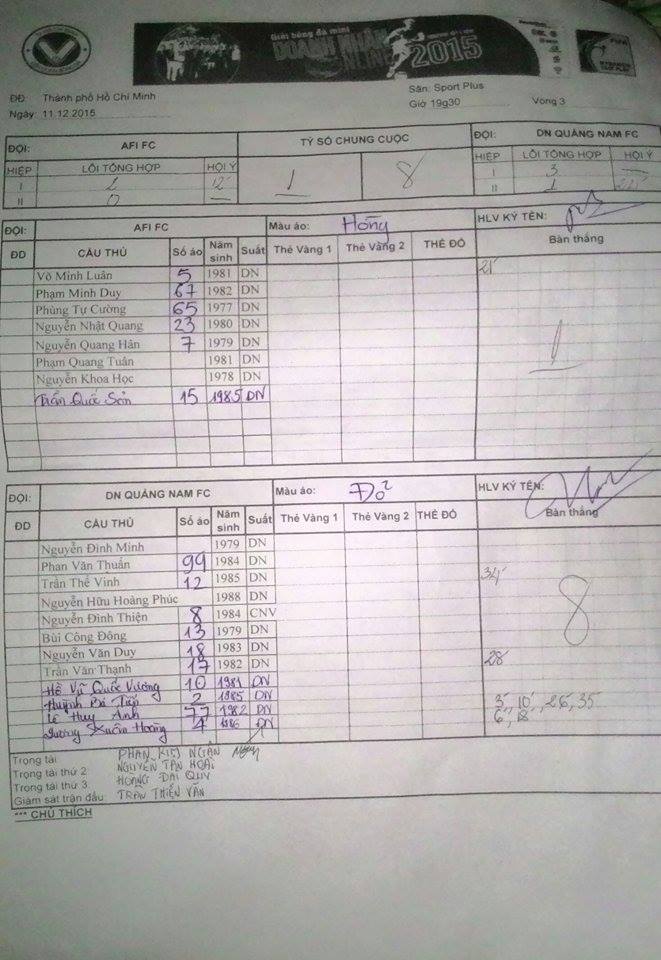 Giải bóng đá mini
DOANH NHÂN
ONLINE 2015
ĐĐ: Thành phố Hồ Chí Minh Sân: Sport Plus
Ngày: 11.12.2015 Giờ 19g30 Vòng 3
ĐỘI: AFI FC TỶ SỐ CHUNG CUỘC ĐỘI: DN QUẢNG NAM FC
HIỆP LỖI TỔNG HỢP HỘI Ý 1 8 HIỆP LỖI TỔNG HỢP HỘI Ý
I 12' I 3 —
II 0 — II 1
ĐỘI: AFI FC Màu áo: Hồng HLV KÝ TÊN:
ĐD CẦU THỦ Số áo Năm sinh Suất Thẻ Vàng 1 Thẻ Vàng 2 THẺ ĐỎ Bàn thắng
Võ Minh Luân 5 1981 DN 21'
Phạm Minh Duy 67 1982 DN
Phùng Tự Cường 65 1977 DN
Nguyễn Nhật Quang 23 1980 DN 1
Nguyễn Quang Hân 7 1979 DN
Phạm Quang Tuân 1981 DN
Nguyễn Khoa Học 1978 DN
Trần Quốc Sơn 15 1985 DN
ĐỘI: DN QUẢNG NAM FC Màu áo: Đỏ HLV KÝ TÊN:
ĐD CẦU THỦ Số áo Năm sinh Suất Thẻ Vàng 1 Thẻ Vàng 2 THẺ ĐỎ Bàn thắng
Nguyễn Đình Minh 1979 DN
Phan Văn Thuấn 99 1984 DN
Trần Thế Vinh 12 1985 DN 34'
Nguyễn Hữu Hoàng Phúc 1988 DN 8
Nguyễn Đình Thiện 8 1984 CNV
Bùi Công Đông 13 1979 DN
Nguyễn Văn Duy 18 1983 DN
Trần Văn Thạnh 17 1982 DN 28'
Hồ Vũ Quốc Vương 10 1981 DN
Huỳnh Bá Tiến 2 1985 DN
Lê Huy Anh 77 1982 DN 3', 10', 26', 35'
Dương Xuân Hoàng 4 1986 DN 6', 18'
Trọng tài PHAN KIM NGÂN
Trọng tài thứ 2: NGUYỄN TẤN HOÀI
Trọng tài thứ 3: HOÀNG ĐẠI QUY
Giám sát trận đấu: TRẦN THIỆN VĂN
*** CHÚ THÍCH